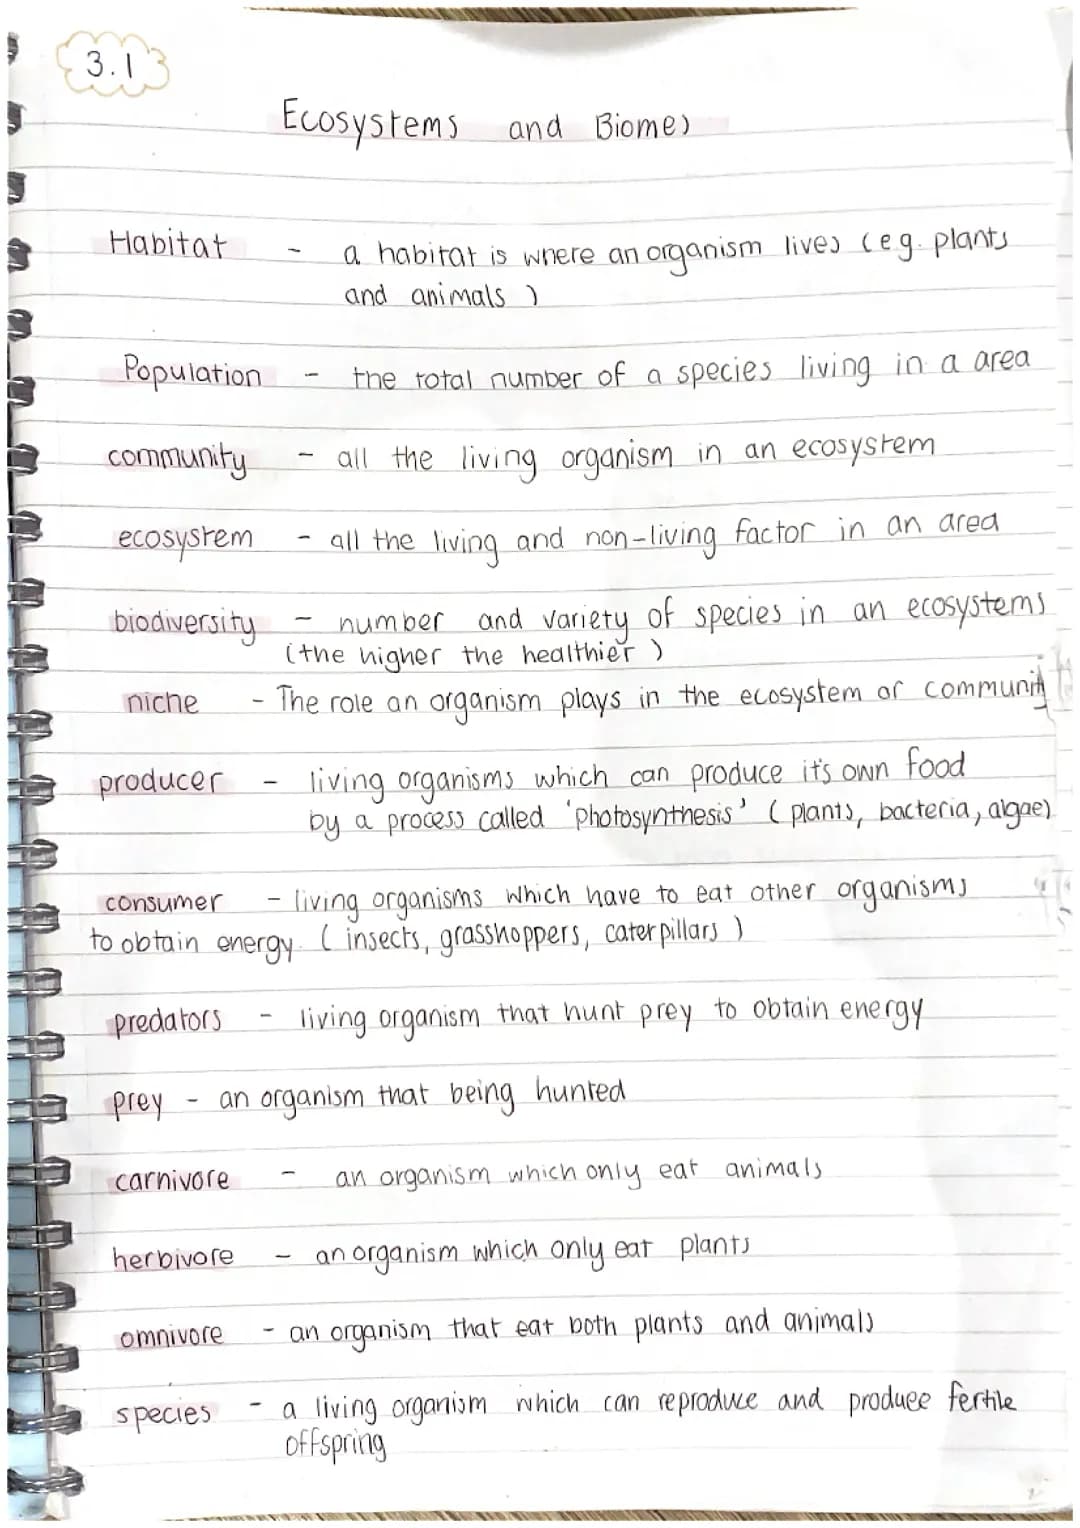 3.1
Ecosystems and Biomes
Habitat - a habitat is where an organism lives (eg. plants
and animals )
Population - the total number of a species living in a area
community - all the living organism in an ecosystem
ecosystem - all the living and non-living factor in an area
biodiversity - number and variety of species in an ecosystems
(the higher the healthier )
niche - The role an organism plays in the ecosystem or community
producer - living organisms which can produce it's own food
by a process called 'photosynthesis' ( plants, bacteria, algae)
consumer - living organisms which have to eat other organisms
to obtain energy. ( insects, grasshoppers, caterpillars )
predators - living organism that hunt prey to obtain energy
prey - an organism that being hunted
carnivore - an organism which only eat animals
herbivore - an organism which only eat plants
omnivore - an organism that eat both plants and animals
species - a living organism which can reproduce and produce fertile
offspring